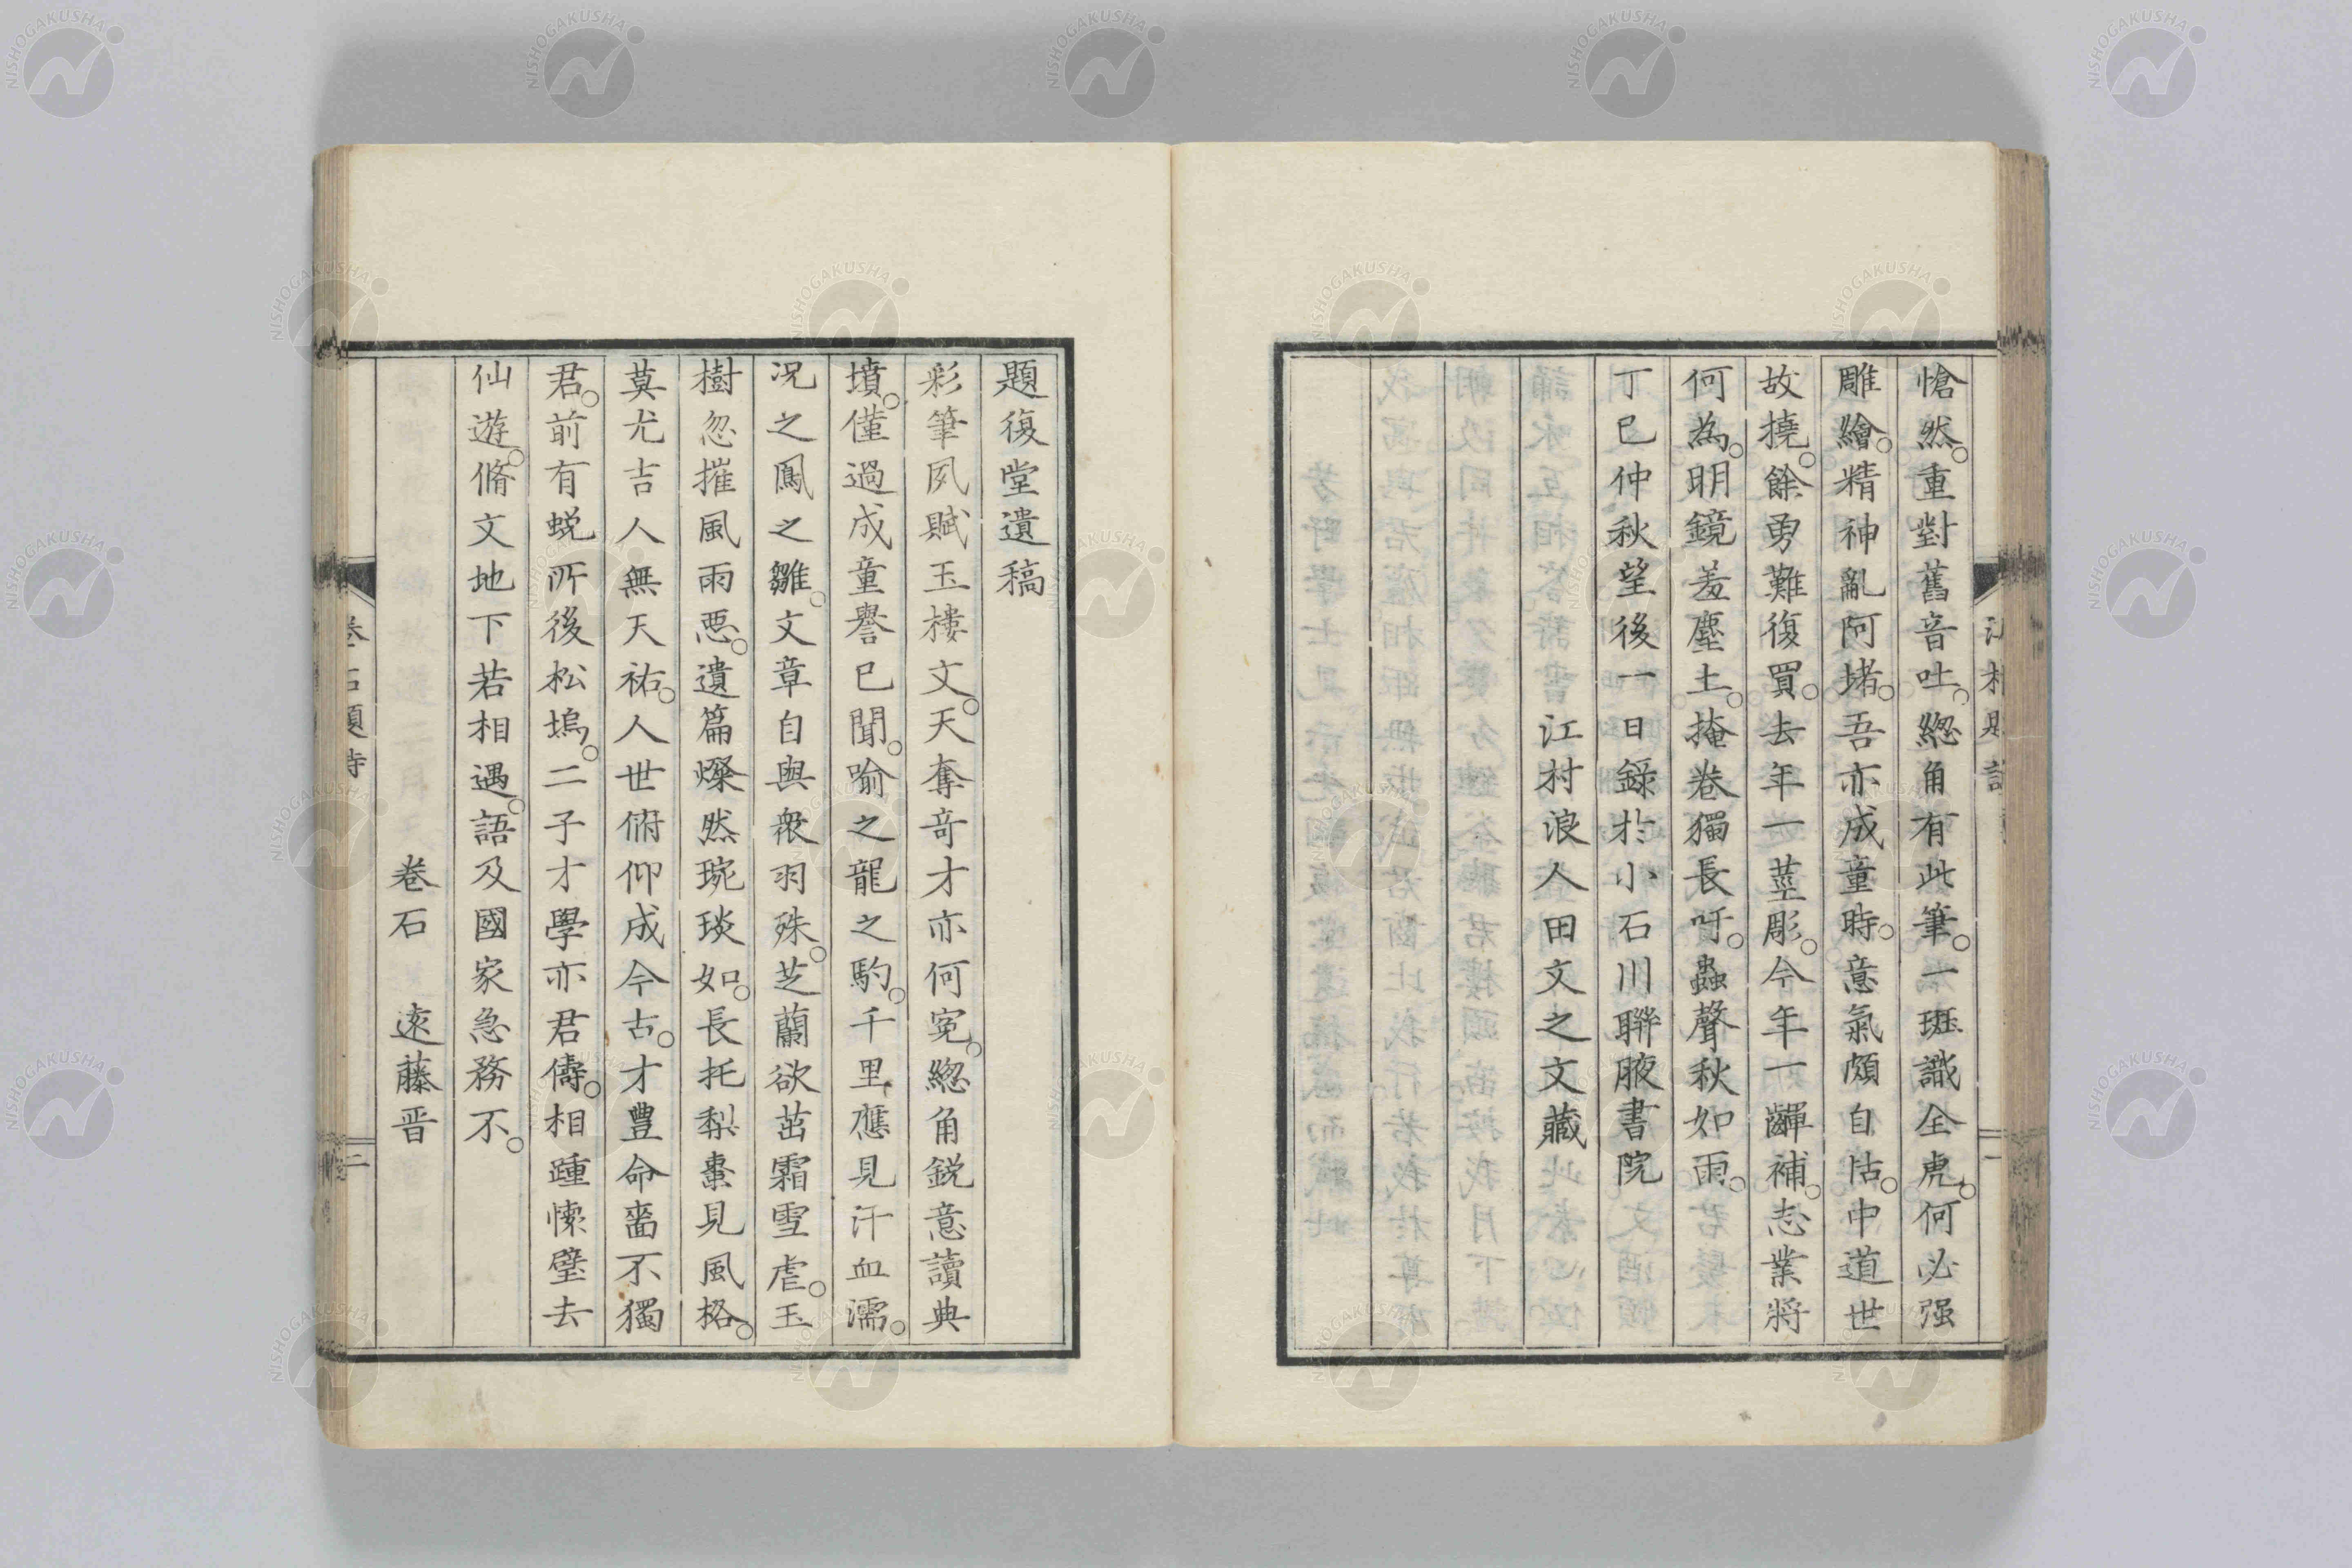 愴然。重對舊音吐。緫角有此筆。一斑識全虎。何必强
雕繪。精神亂阿堵。吾亦成童時。意氣頗自怙。中道世
故撓。餘勇難復買。去年一莖彫。今年一齳補。志業將
何為。明鏡羞塵土。掩卷獨長吁。蟲聲秋如雨。
丁巳仲秋望後一日錄於小石川聯腋書院
江村浪人田文之文藏
題復堂遺稿
彩筆夙賦玉樓文。天奪奇才亦何寃。緫角銳意讀典
墳。僅過成童譽已聞。喻之龍之駒。千里應見汗血濡。
況之鳳之雛。文章自與衆羽殊。芝蘭欲茁霜雪虐。玉
樹忽摧風雨惡。遺篇燦然琬琰如。長托梨棗見風格。
莫尤吉人無天祐。人世俯仰成今古。才豐命嗇不獨
君。前有蛻所後松塢。二子才學亦君儔。相踵懷璧去
仙遊。脩文地下若相遇。語及國家急務不。
卷石 遠藤晋
卷石題詩
二
NISHOGAKUSHA